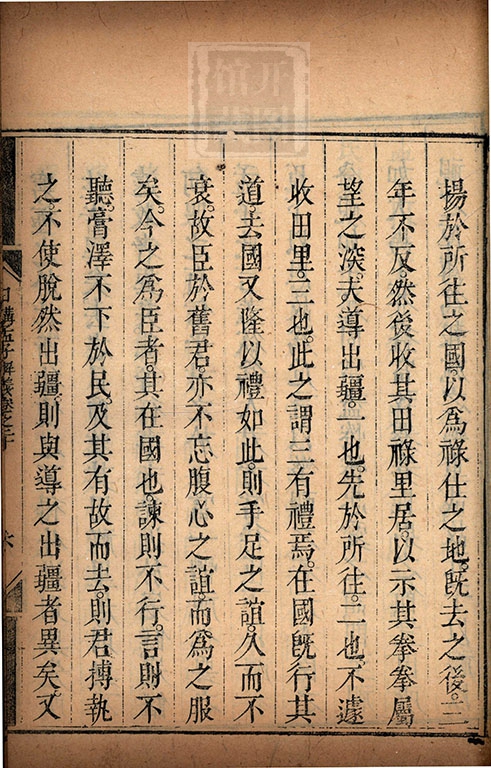 揚於所往之國。以爲祿仕之地。旣去之後。三
年不反。然後收其田祿里居。以示其拳拳屬
望之深。夫導出疆。一也。先於所往。二也。不遽
收田里。三也。此之謂三有禮焉。在國旣行其
道。去國又隆以禮如此。則手足之誼。久而不
衰。故臣於舊君。亦不忘腹心之誼。而爲之服
矣。今之爲臣者。其在國也。諫則不行。言則不
聽。膏澤不下於民。及其有故而去。則君搏執
之。不使脫然出疆。則與導之出疆者異矣。又
日講四書解義卷之二十
六